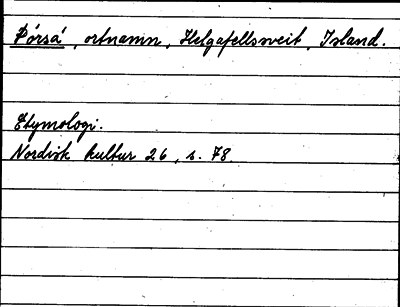 Þórsá, ortnamn, Helgafellssveit, Island.
Etymologi.
Nordisk kultur 26, s. 78